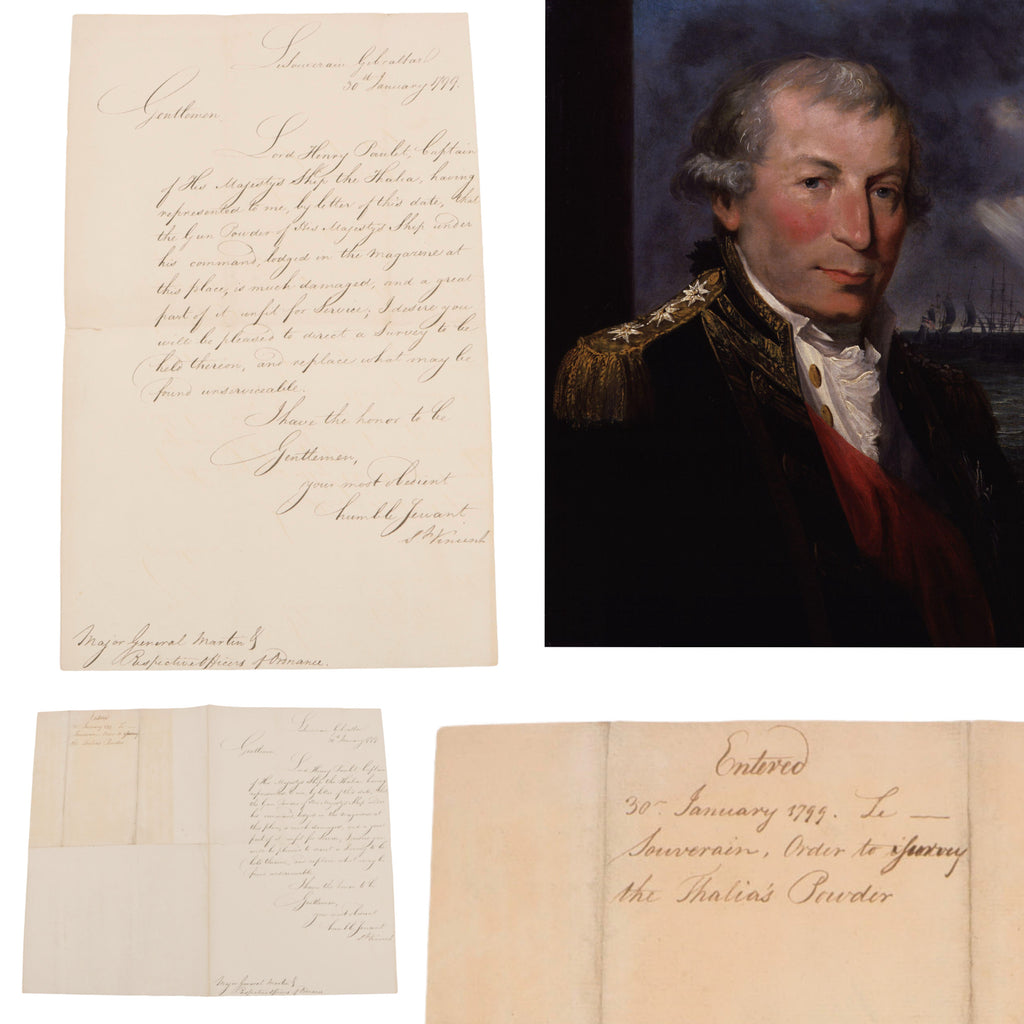 Le Souverain Gibraltar
30th January 1799.
Gentlemen
Lord Henry Paulet, Captain
of His Majesty's Ship the Thalia, having
represented to me, by letter of this date, that
the Gun Powder of His Majesty's Ship under
his command, lodged in the Magazine at
this place, is much damaged, and a great
part of it unfit for Service; I desire you
will be pleased to direct a Survey to be
held thereon, and replace what may be
found unserviceable.
I have the honor to be
Gentlemen,
your most obedient
humble Servant
St Vincent
Major General Martin &
Respective Officers of Ordnance.
Entered
30 January 1799. Le —
Souverain, Order to Survey
the Thalia's Powder
Le Souverain Gibraltar
30th January 1799
Gentlemen
Lord Henry Paulet, Captain
of His Majesty's Ship the Thalia, having
represented to me, by letter of this date, that
the Gun Powder of His Majesty's Ship under
his command, lodged in the Magazine at
this place, is much damaged, and a great
part of it unfit for Service; I desire you
will be pleased to direct a Survey to be
held thereon, and replace what may be
found unserviceable.
I have the honor to be
Gentlemen,
your most obedient
humble Servant
St Vincent
Major General Martin &
Respective Officers of Ordnance
Entered
30 January 1799. Le —
Souverain, Order to Survey
the Thalia's Powder